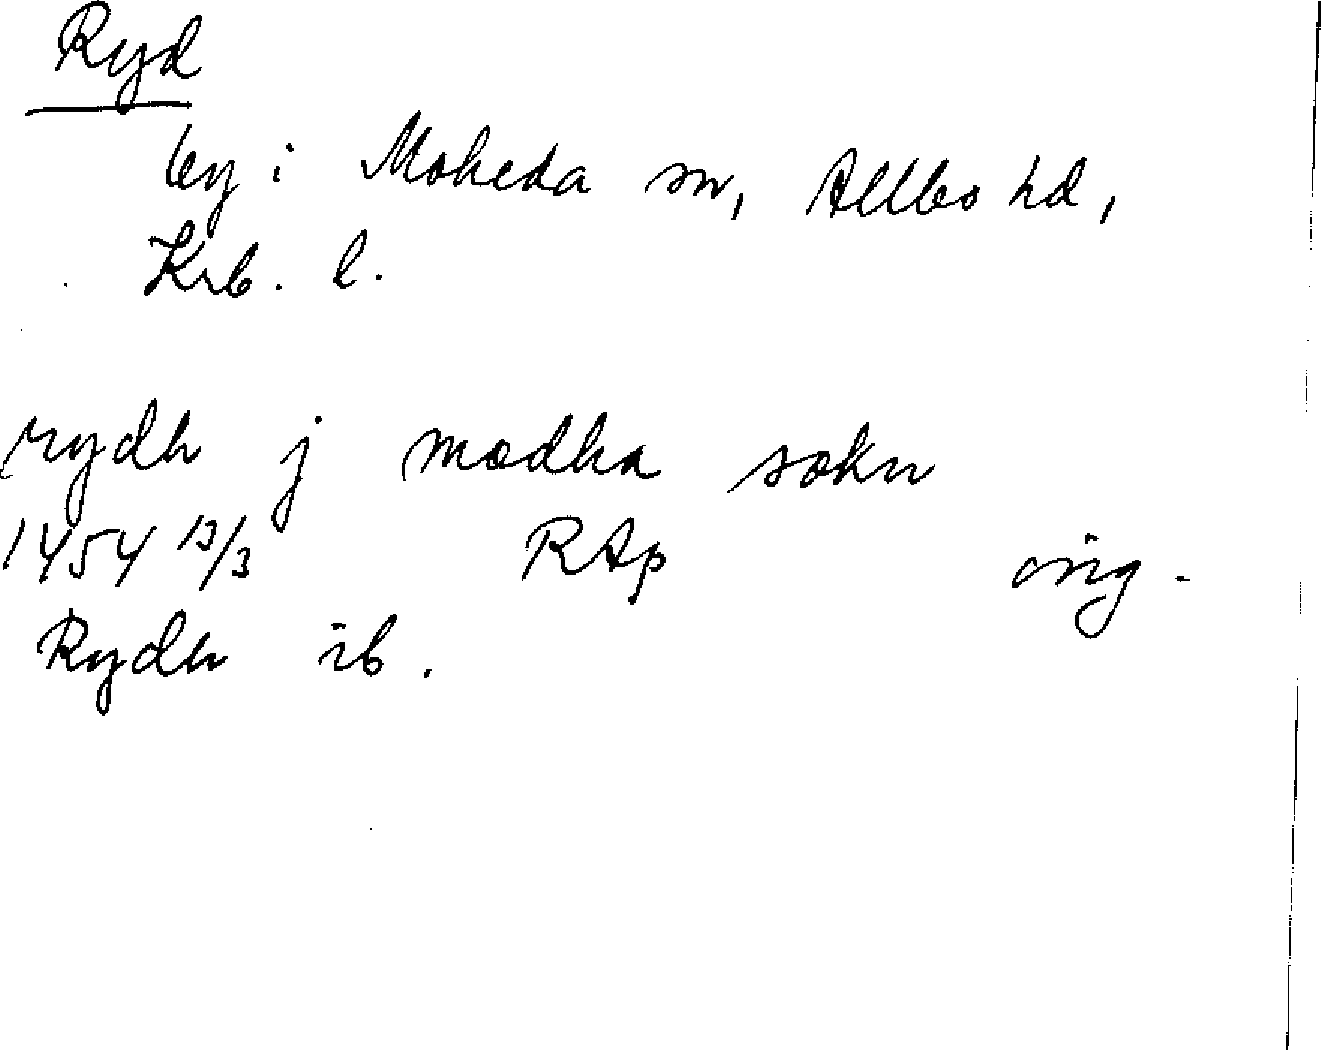 Ryd
by i Moheda sn, Allbo hd,
Krb. l.
rydh j modha sokn
1454 13/3 RAp orig.
Rydh ib.